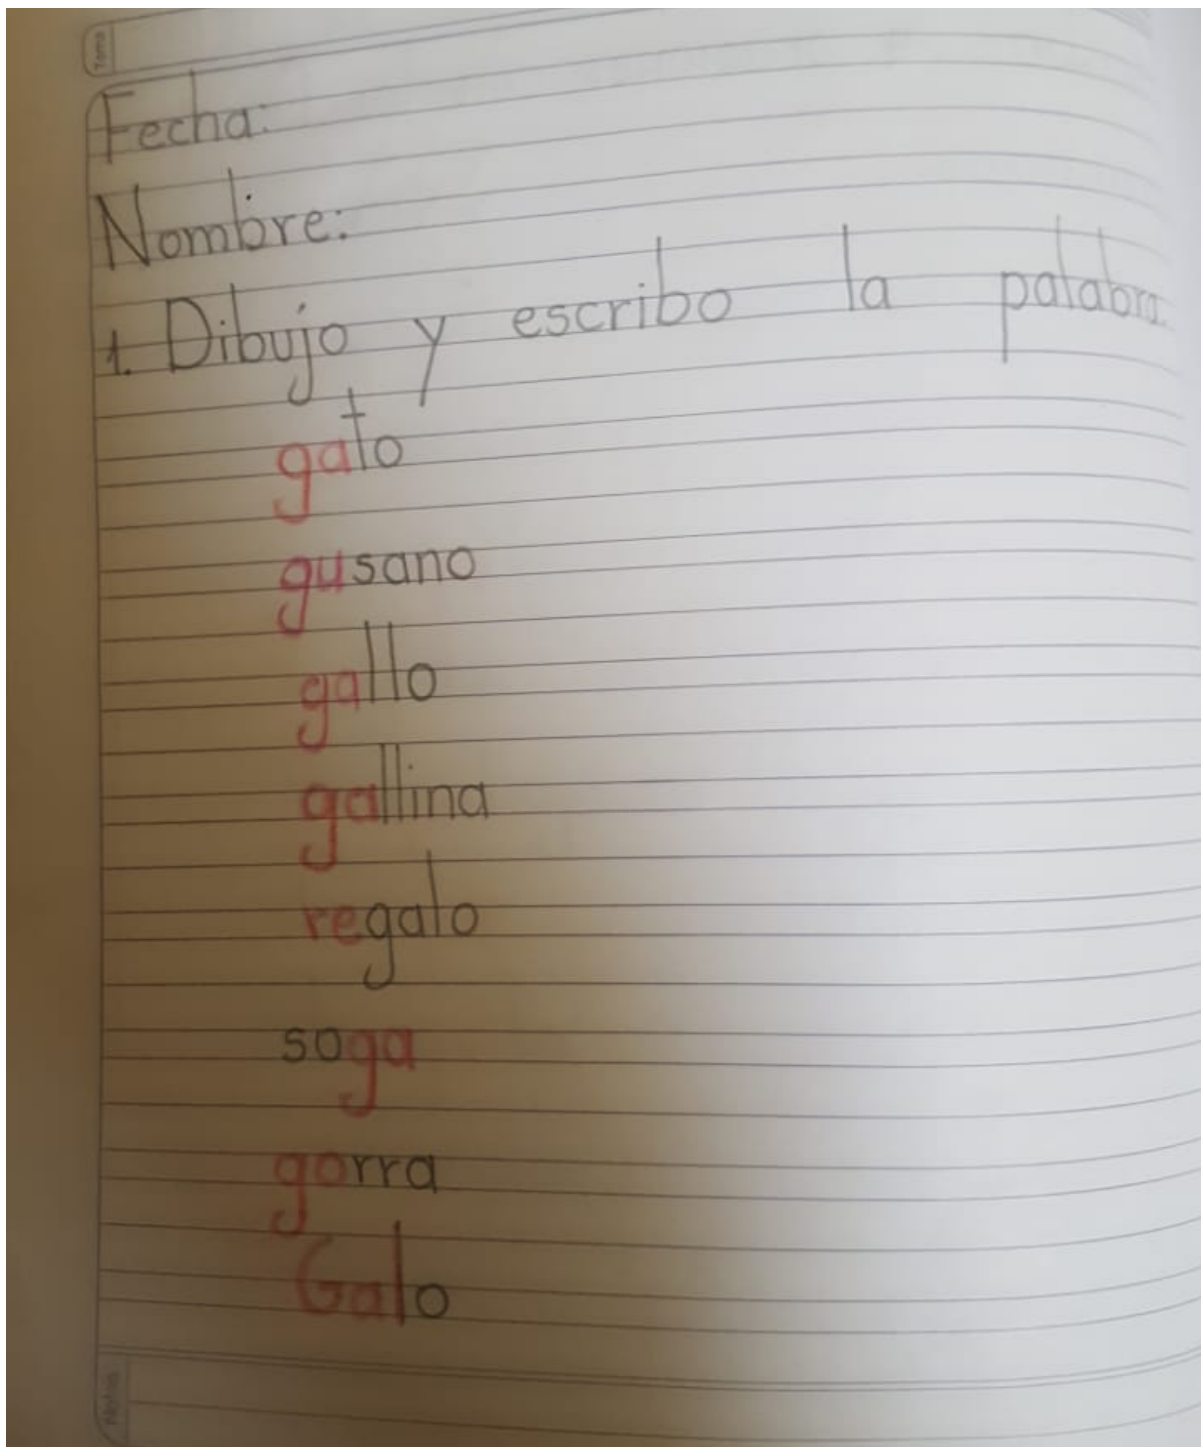 Tema
Fecha:
Nombre:
1. Dibujo y escribo la palabra.
gato
gusano
gallo
gallina
regalo
soga
gorra
Galo
Notas